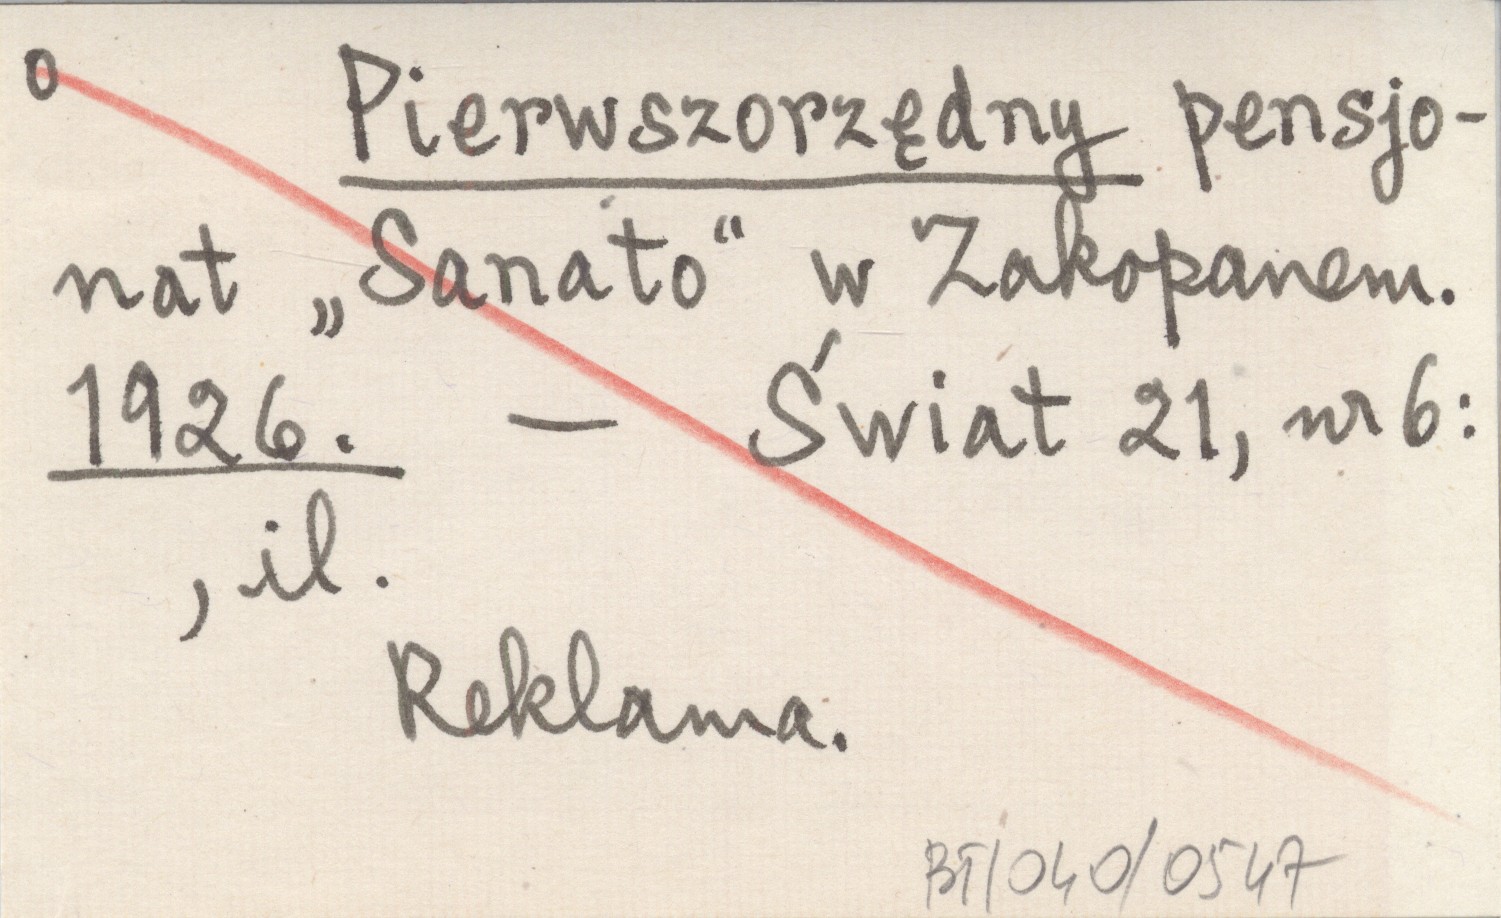 o Pierwszorzędny pensjo-
nat „Sanato“ w Zakopanem.
1926. — Świat 21, nr 6:
, il.
Reklama.
BT/040/0547